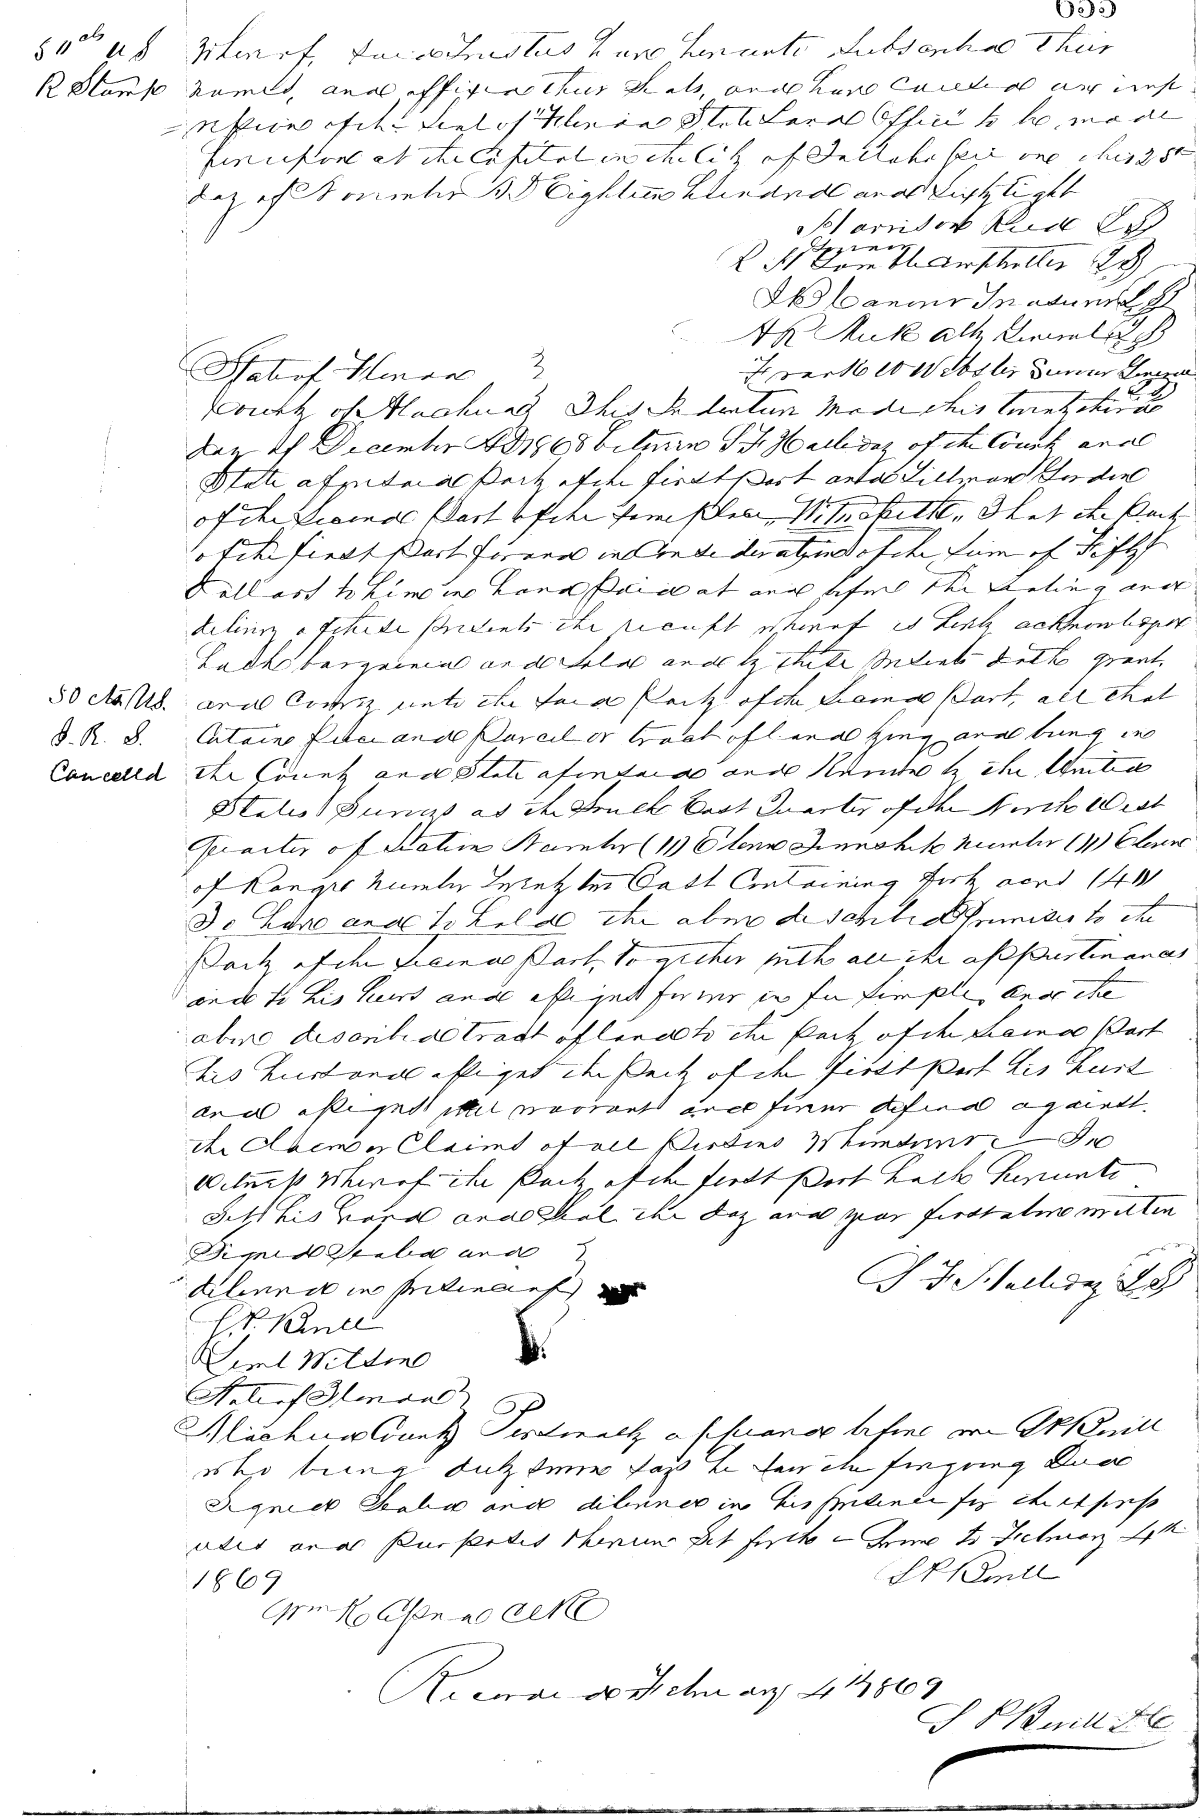 655
50 cts U S
R Stamp
Whereof, said Trustees have hereunto subscribed their
names, and affixed their seals, and have caused an imp
=ression of the seal of "Florida State Land Office" to be made
hereupon at the Capitol in the City of Tallahassee on this 28th
day of November A D Eighteen hundred and Sixty Eight
Harrison Reed L S
Governor
R H Gamble Comptroller L S
S B Conover Treasurer L S
A R Meek Atty General L S
Frank W Webster Survr General
L S
State of Florida
County of Alachua This Indenture made this twenty third
day of December A D 1868 between S F Halliday of the County and
State aforesaid Party of the first Part and Tillman Gordon
of the Second Part of the same place, Witnesseth, That the Party
of the first Part for and in Consideration of the sum of Fifty
Dollars to him in hand paid at and before the Sealing and
delivery of these presents the receipt whereof is herby acknowledged
hath bargained and sold and by these presents doth grant
50 cts U.S.
I. R. S.
Cancelled
and Convey unto the said Party of the Second Part, all that
Certain piece and Parcel or tract of land lying and being in
the County and State aforesaid and Known by the United
States Surveys as the South East Quarter of the North West
Quarter of Section Number (11) Eleven Township Number (11) Eleven
of Range Number Twenty two East Containing forty acres (40)
To have and to hold the above described Premises to the
Party of the Second Part, together with all the appurtenances
and to his heirs and assigns forever in fee Simple, and the
above described tract of land to the Party of the Second Part
his heirs and assigns the Party of the first Part his heirs
and assigns will warrant and forever defend against
the Claim or Claims of all Persons Whomsoever — In
Witness Whereof the Party of the first Part hath hereunto
Set his hand and Seal the day and year first above written
Signed Sealed and
delivered in presence of
S F Halliday L S
Saml Wilson
State of Florida
Alachua County Personally appeared before me
who being duly sworn says he saw the foregoing Deed
Signed Sealed and delivered in his presence for the express
uses and purposes therein Set forth – Sworn to February 4th
1869
Wm K Clerk
Recorded February 4th 1869